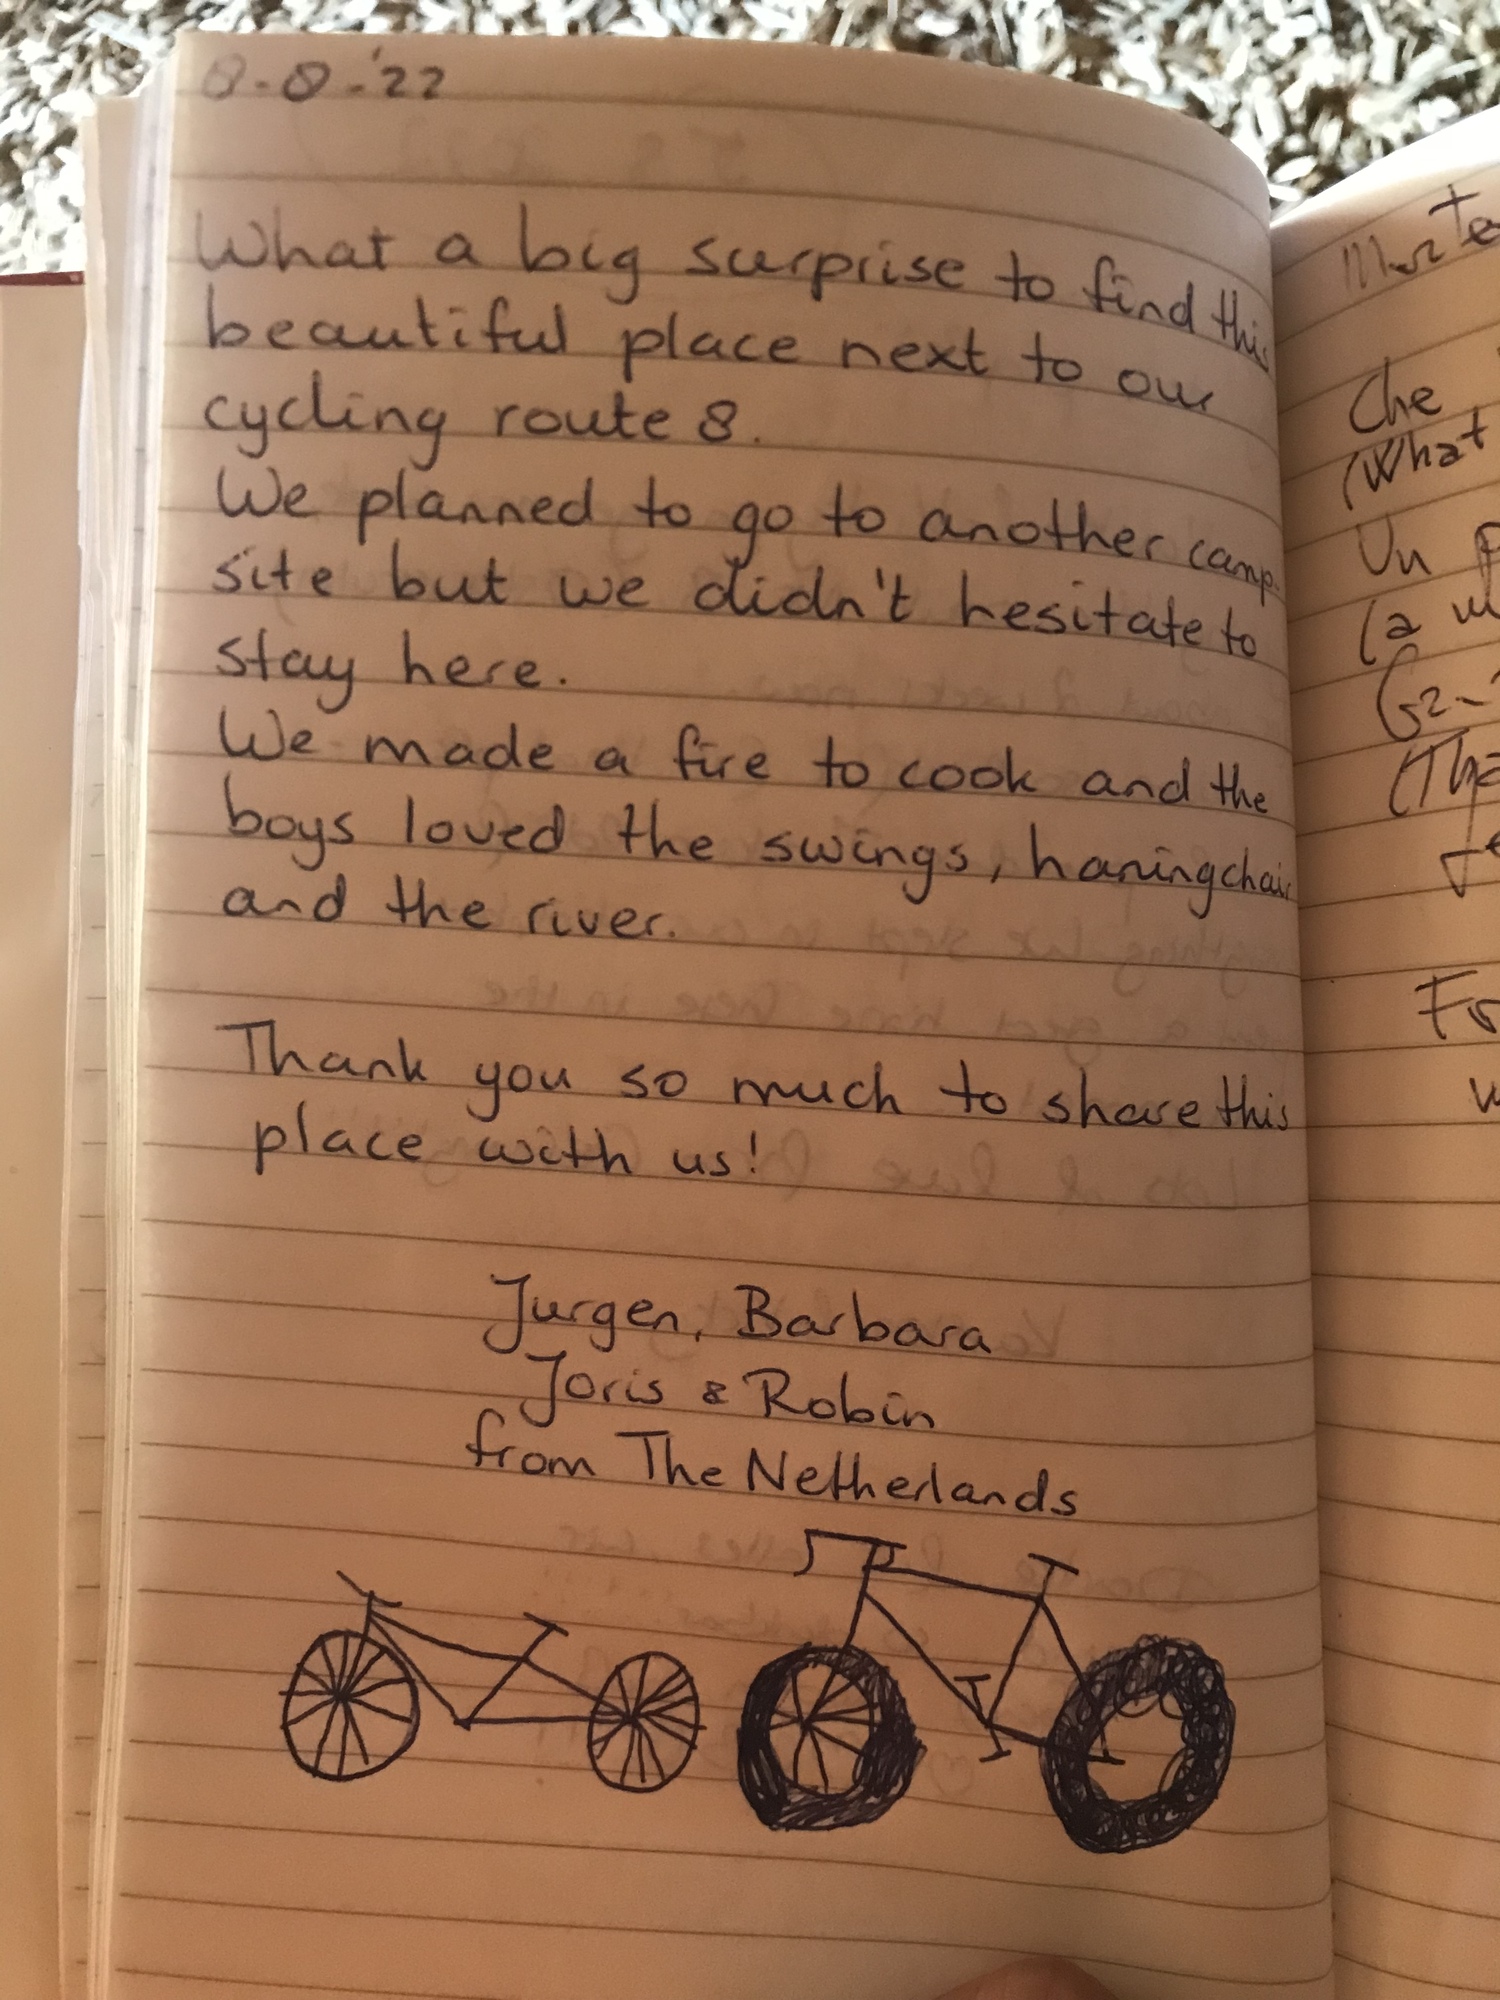 8-8-'22
What a big surprise to find this
beautiful place next to our
cycling route 8.
We planned to go to another camp-
site but we didn't hesitate to
stay here.
We made a fire to cook and the
boys loved the swings, haningchair
and the river.
Thank you so much to share this
place with us!
Jurgen, Barbara
Joris & Robin
from The Netherlands
Che
(What
Un
(a